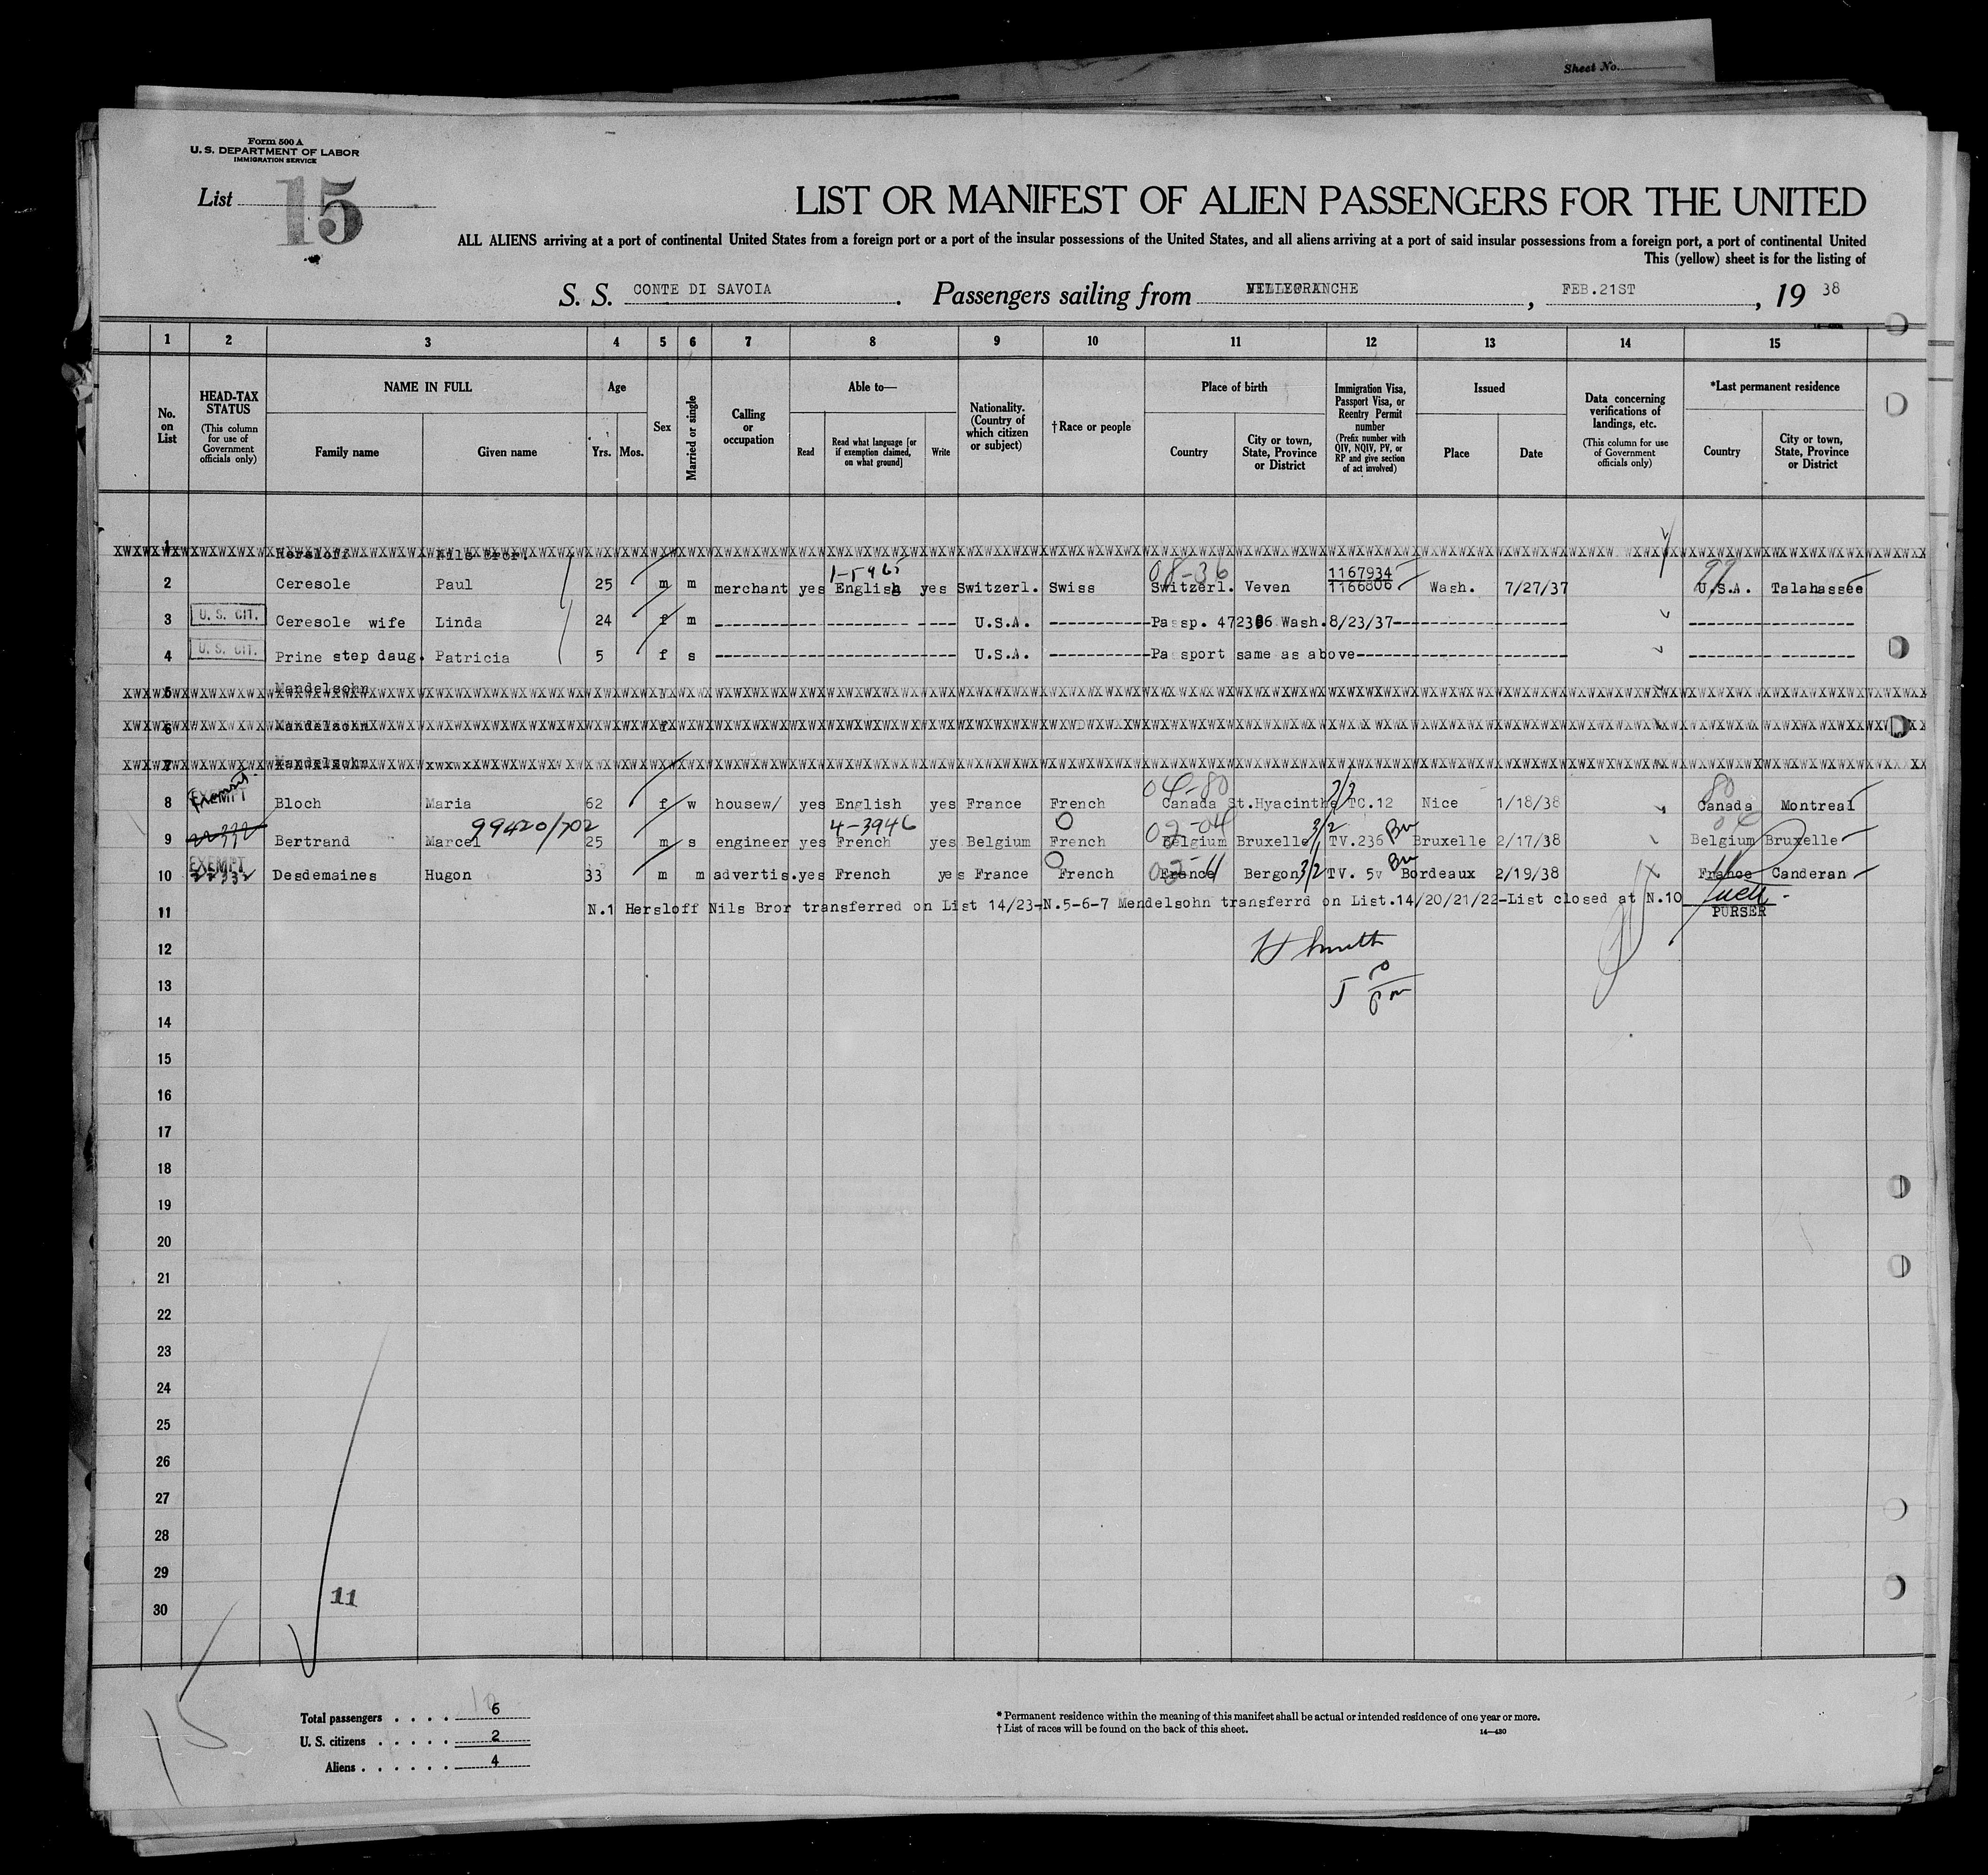 Sheet No.
Form 500 A
U. S. DEPARTMENT OF LABOR
IMMIGRATION SERVICE
List 15
LIST OR MANIFEST OF ALIEN PASSENGERS FOR THE UNITED
ALL ALIENS arriving at a port of continental United States from a foreign port or a port of the insular possessions of the United States, and all aliens arriving at a port of said insular possessions from a foreign port, a port of continental United
This (yellow) sheet is for the listing of
S. S. CONTE DI SAVOIA. Passengers sailing from VILLEFRANCHE, FEB.21ST, 19 38
1 2 3 4 5 6 7 8 9 10 11 12 13 14 15
No. on List
HEAD-TAX STATUS (This column for use of Government officials only)
NAME IN FULL
Family name Given name
Age
Yrs. Mos.
Sex
Married or single
Calling or occupation
Able to—
Read
Read what language [or if exemption claimed, on what ground]
Write
Nationality. (Country of which citizen or subject)
†Race or people
Place of birth
Country
City or town, State, Province or District
Immigration Visa, Passport Visa, or Reentry Permit number (Prefix number with QIV, NQIV, PV, or RP and give section of act involved)
Issued
Place Date
Data concerning verifications of landings, etc. (This column for use of Government officials only)
*Last permanent residence
Country
City or town, State, Province or District
1 Hersloff Nils Bror.
08-36 1167934 99
2 Ceresole Paul 25 m m merchant yes English yes Switzerl. Swiss Switzerl. Veven 1166806 Wash. 7/27/37 U.S.A. Talahassee
3 U. S. CIT. Ceresole wife Linda 24 f m U.S.A. Passp. 472386 Wash. 8/23/37
4 U. S. CIT. Prine step daug. Patricia 5 f s U.S.A. Passport same as above
5 Mandelsohn
6 Mandelsohn f
7 Mandelsohn
Exempt 04-80 3/2 80
8 EXEMPT Bloch Maria 62 f w housew/ yes English yes France French Canada St.Hyacinthe TC.12 Nice 1/18/38 Canada Montreal
99420/702 4-3946 02-04 3/2
9 Bertrand Marcel 25 m s engineer yes French yes Belgium French Belgium Bruxelle TV.236 Bruxelle 2/17/38 Belgium Bruxelle
EXEMPT
10 22332 Desdemaines Hugon 33 m m advertis. yes French yes France French France Bergon 3/2 TV. 5v Bordeaux 2/19/38 France Canderan
11 N.1 Hersloff Nils Bror transferred on List 14/23-N.5-6-7 Mendelsohn transferrd on List.14/20/21/22-List closed at N.10
PURSER
12 H Smith
13
14
15
16
17
18
19
20
21
22
23
24
25
26
27
28
29
30
11
15
Total passengers . . . . 6
U. S. citizens . . . . . 2
Aliens . . . . . . 4
* Permanent residence within the meaning of this manifest shall be actual or intended residence of one year or more.
† List of races will be found on the back of this sheet.
14—430